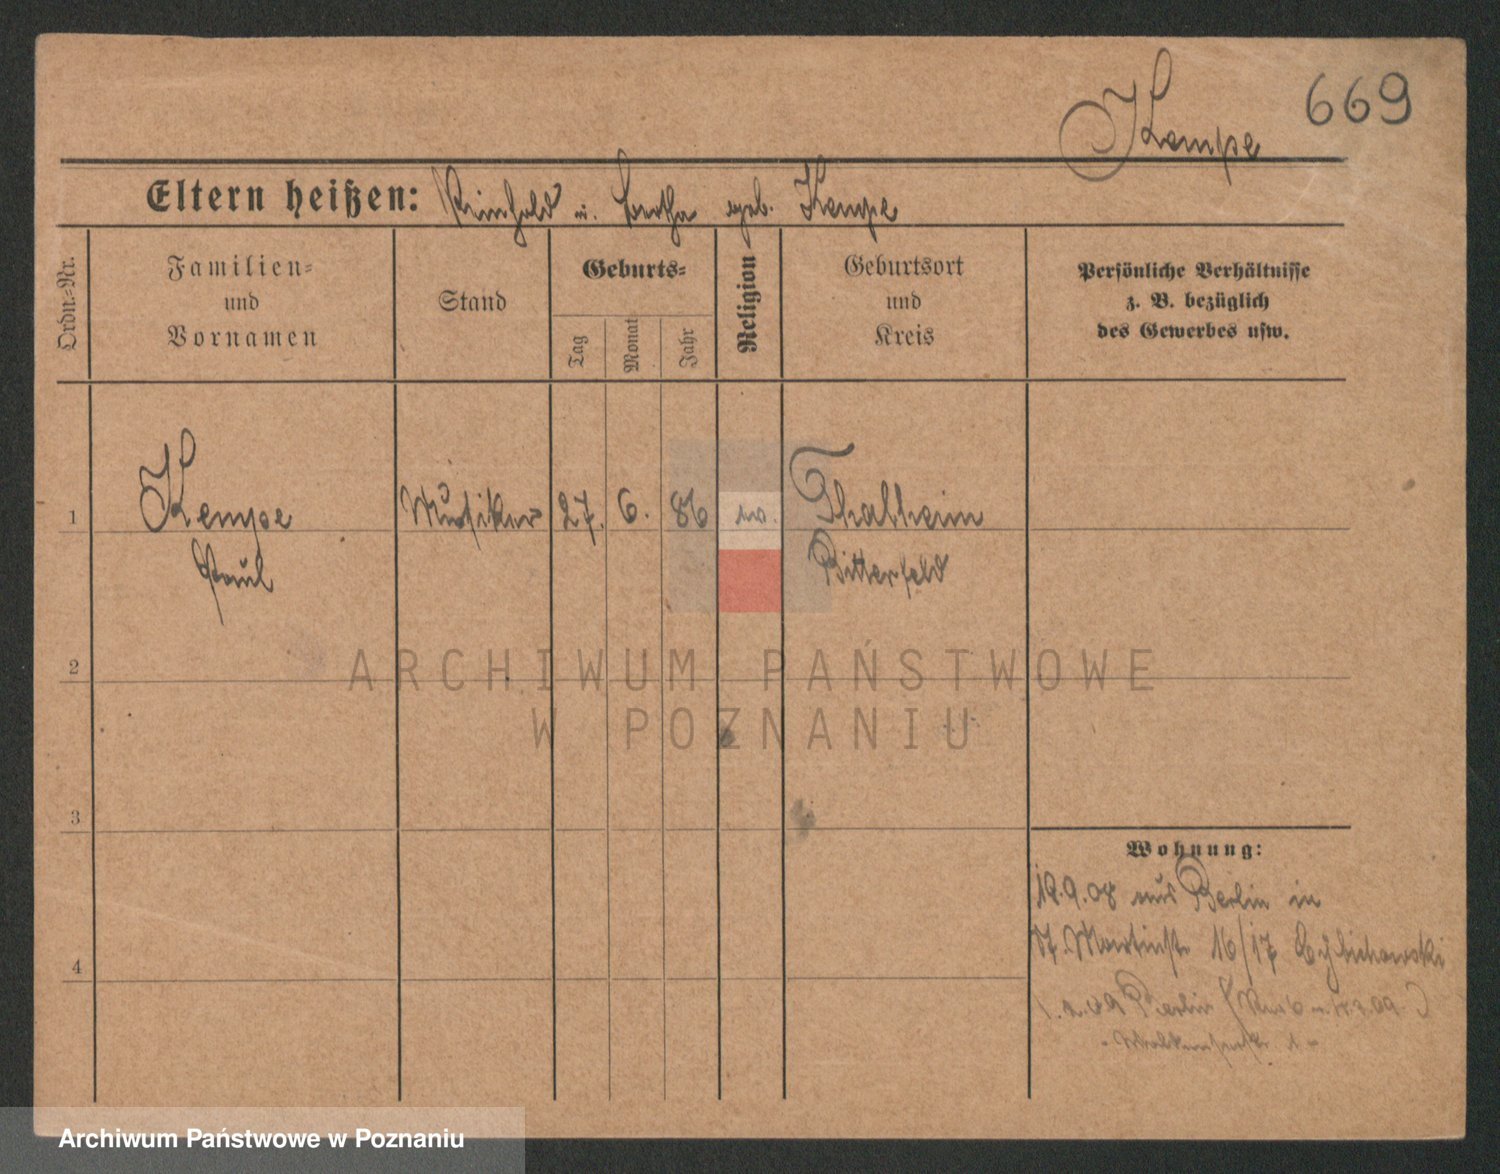 669
Kempe
Eltern heißen: Reinhold u. Bertha geb. Kempe
Ordn.-Nr.
Familien-
und
Vornamen
Stand
Geburts-
Tag
Monat
Jahr
Religion
Geburtsort
und
Kreis
Persönliche Verhältnisse
z. B. bezüglich
des Gewerbes usw.
1
Kempe Musiker 27. 6. 86 Thalheim
Paul Bitterfeld
ARCHIWUM PAŃSTWOWE
W POZNANIU
2
3
4
Wohnung:
19.9.08 aus Berlin in
St. Martinstr 16/17
Berlin
Archiwum Państwowe w Poznaniu